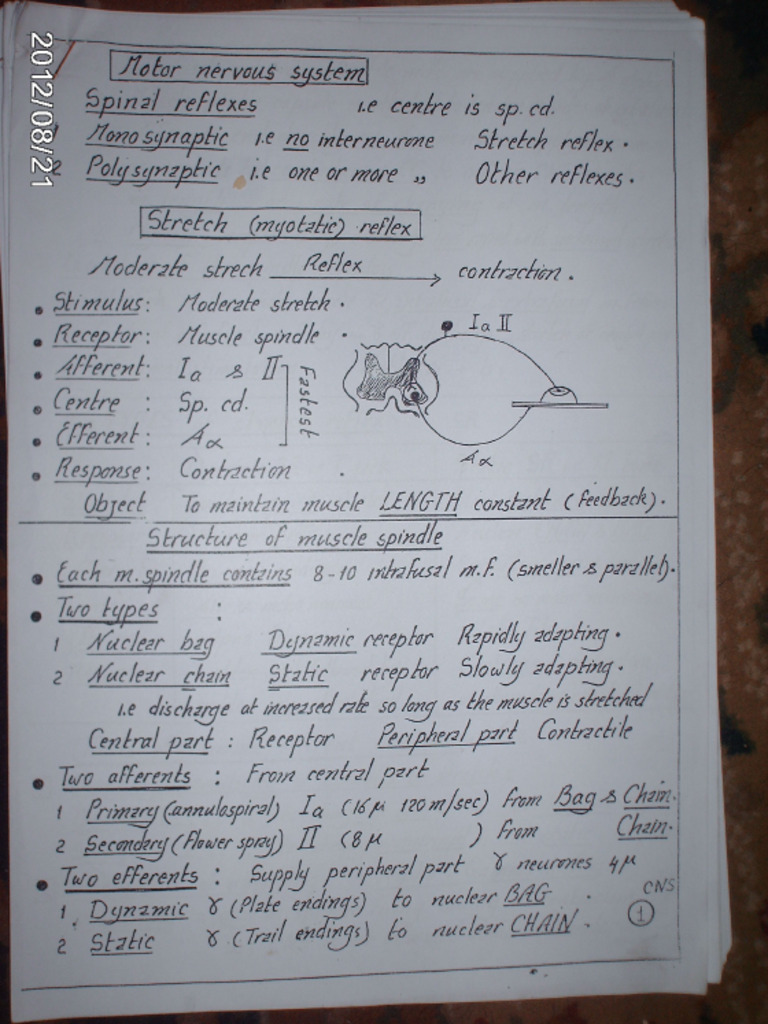 2012/08/21
Motor nervous system
Spinal reflexes i.e centre is sp. cd.
1 Monosynaptic i.e no interneurone Stretch reflex.
2 Polysynaptic i.e one or more ,, Other reflexes.
Stretch (myotatic) reflex
Moderate strech Reflex contraction.
• Stimulus: Moderate stretch.
• Receptor: Muscle spindle.
Ia II
• Afferent: Ia & II
• Centre : Sp. cd.
Fastest
• Efferent: Aα
Aα
• Response: Contraction.
Object To maintain muscle LENGTH constant (feedback).
Structure of muscle spindle
• Each m. spindle contains 8-10 intrafusal m.f. (smeller & parallel).
• Two types :
1 Nuclear bag Dynamic receptor Rapidly adapting.
2 Nuclear chain Static receptor Slowly adapting.
i.e discharge at increased rate so long as the muscle is stretched
Central part : Receptor Peripheral part Contractile
• Two afferents : From central part
1 Primary (annulospiral) Ia (16μ 120m/sec) from Bag & Chain.
2 Secondary (flower spray) II (8μ ) from Chain.
• Two efferents : Supply peripheral part γ neurones 4μ
1. Dynamic γ (Plate endings) to nuclear BAG.
2 Static γ (Trail endings) to nuclear CHAIN.
CNS
1